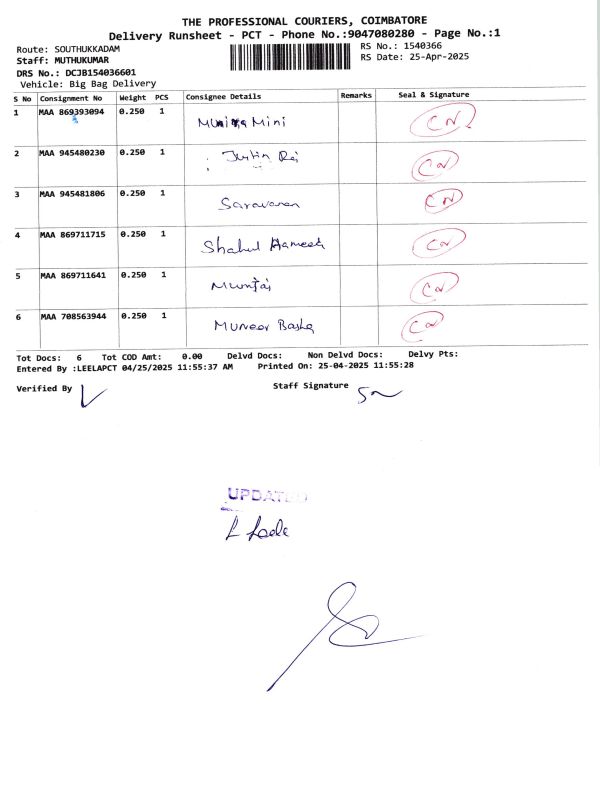 THE PROFESSIONAL COURIERS, COIMBATORE
Delivery Runsheet - PCT - Phone No.:9047080280 - Page No.:1
Route: SOUTHUKKADAM
RS No.: 1540366
Staff: MUTHUKUMAR
RS Date: 25-Apr-2025
DRS No.: DCJB154036601
Vehicle: Big Bag Delivery
S No Consignment No Weight PCS Consignee Details Remarks Seal & Signature
1 MAA 869393094 0.250 1 Mini CN
2 MAA 945480230 0.250 1 Justin Raj CN
3 MAA 945481806 0.250 1 Saravanan CN
4 MAA 869711715 0.250 1 Shahul Hameed CN
5 MAA 869711641 0.250 1 Mumtaj CN
6 MAA 708563944 0.250 1 Muneer Basha CN
Tot Docs: 6 Tot COD Amt: 0.00 Delvd Docs: Non Delvd Docs: Delvy Pts:
Entered By :LEELAPCT 04/25/2025 11:55:37 AM Printed On: 25-04-2025 11:55:28
Verified By Staff Signature
UPDATED